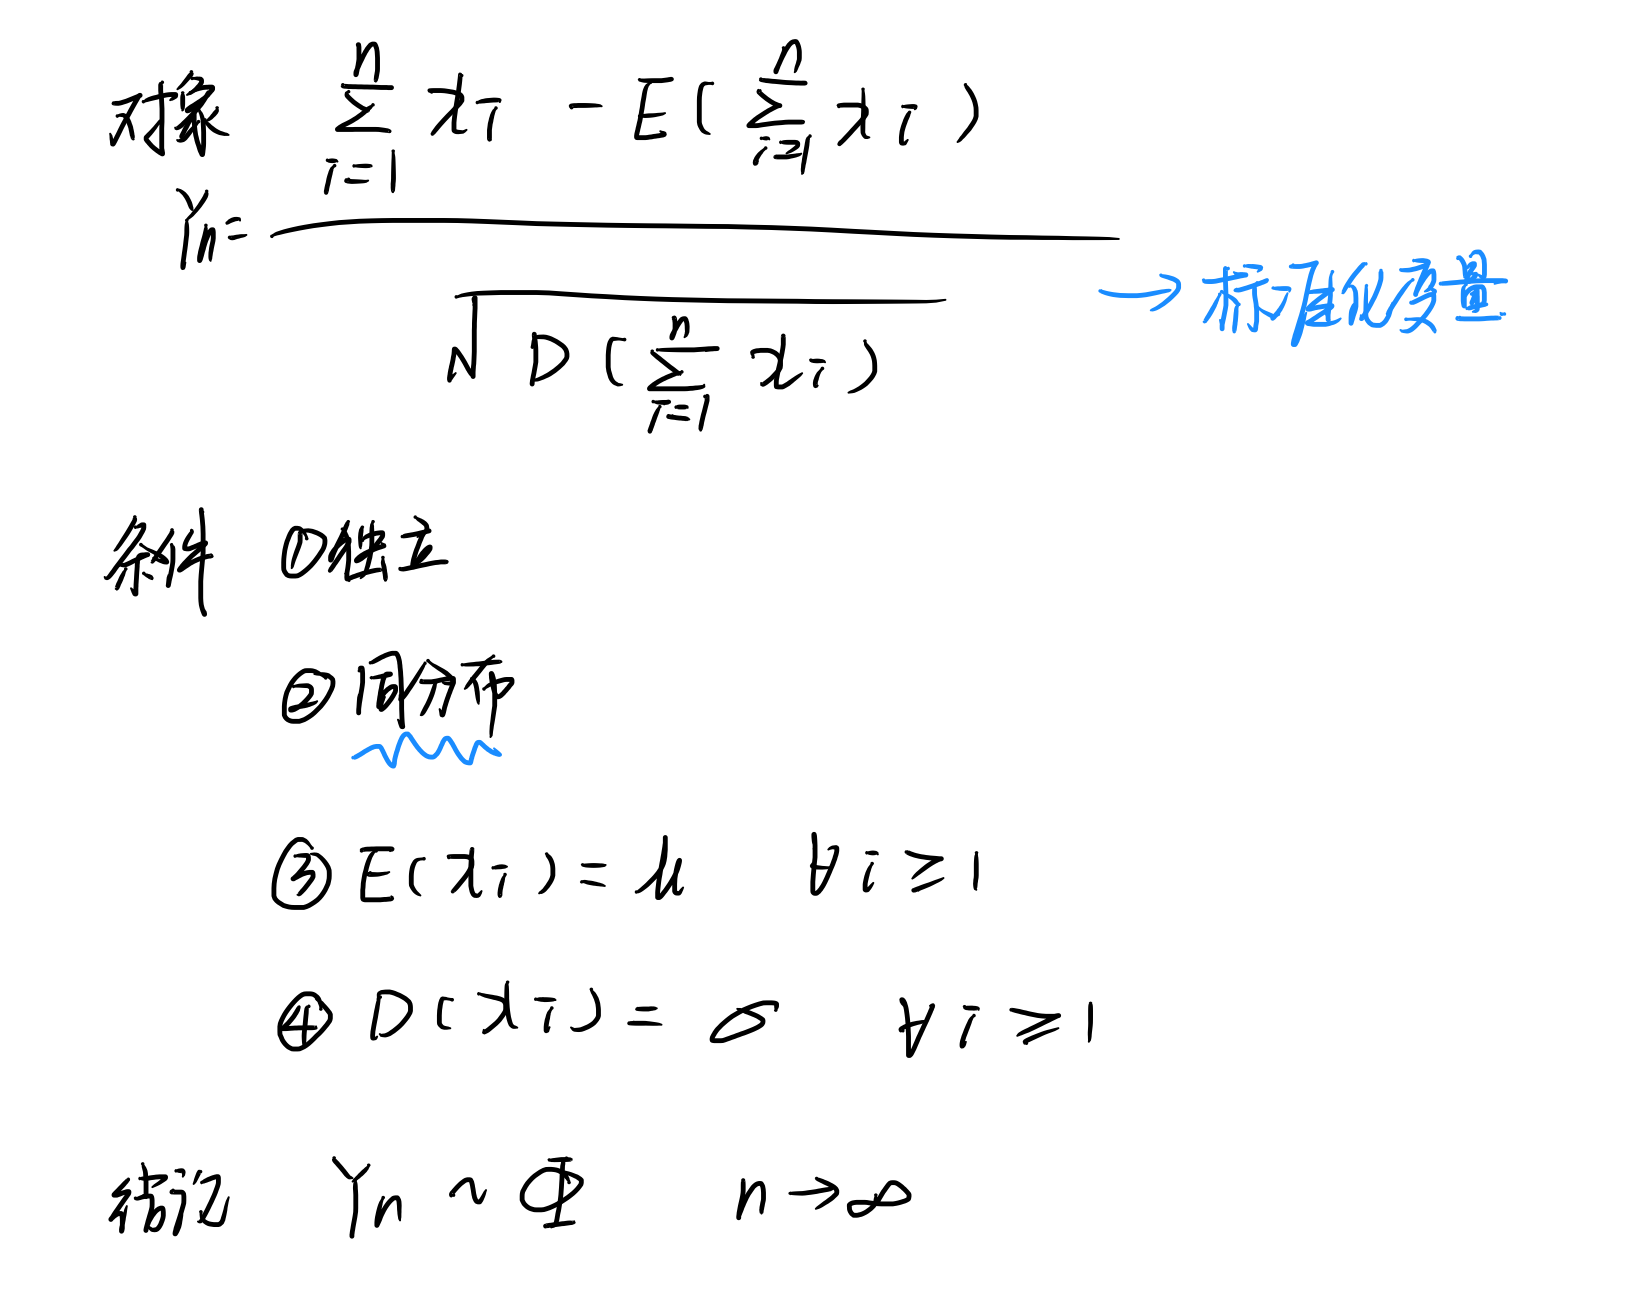 对象 \sum_{i=1}^{n} x_i - E(\sum_{i=1}^{n} x_i)
Y_n =
\sqrt{D(\sum_{i=1}^{n} x_i)}
→ 标准化度量
条件 ①独立
②同分布
③ E(x_i) = μ ∀ i ≥ 1
④ D(x_i) = σ ∀ i ≥ 1
结论 Y_n ~ Φ n→∞